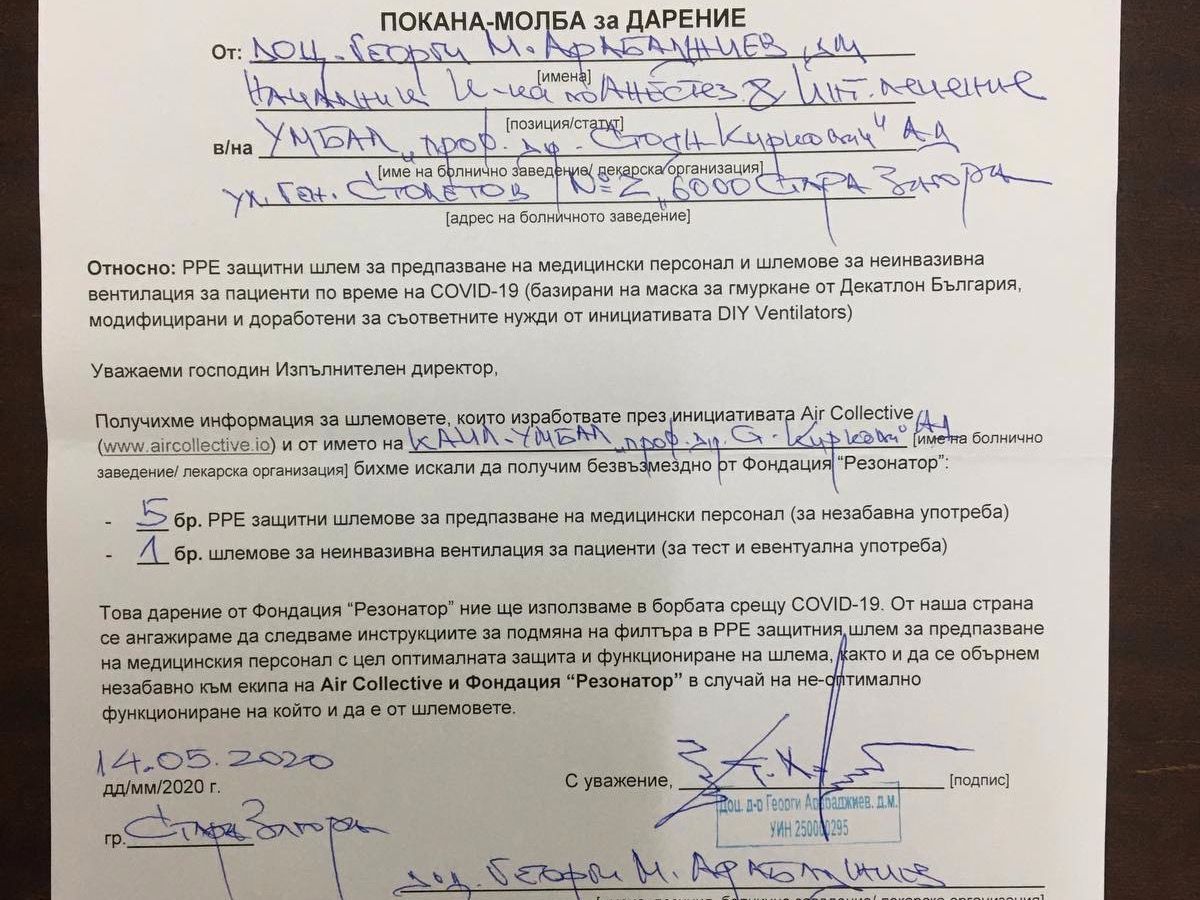 ПОКАНА-МОЛБА за ДАРЕНИЕ
От: Доц. Георги М. Арабаджиев, дм
[имена]
Началник К-ка по Анестез. & Инт. лечение
[позиция/статут]
в/на УМБАЛ „проф. д-р Стоян Киркович" АД
[име на болнично заведение/ лекарска организация]
ул. Ген. Столетов №2, 6000 Стара Загора
[адрес на болничното заведение]
Относно: PPE защитни шлем за предпазване на медицински персонал и шлемове за неинвазивна
вентилация за пациенти по време на COVID-19 (базирани на маска за гмуркане от Декатлон България,
модифицирани и доработени за съответните нужди от инициативата DIY Ventilators)
Уважаеми господин Изпълнителен директор,
Получихме информация за шлемовете, които изработвате през инициативата Air Collective
(www.aircollective.io) и от името на КАИЛ-УМБАЛ „проф. д-р С. Киркович" АД [име на болнично
заведение/ лекарска организация] бихме искали да получим безвъзмездно от Фондация “Резонатор”:
- 5 бр. PPE защитни шлемове за предпазване на медицински персонал (за незабавна употреба)
- 1 бр. шлемове за неинвазивна вентилация за пациенти (за тест и евентуална употреба)
Това дарение от Фондация “Резонатор” ние ще използваме в борбата срещу COVID-19. От наша страна
се ангажираме да следваме инструкциите за подмяна на филтъра в PPE защитния шлем за предпазване
на медицинския персонал с цел оптималната защита и функциониране на шлема, както и да се обърнем
незабавно към екипа на Air Collective и Фондация “Резонатор” в случай на не-оптимално
функциониране на който и да е от шлемовете.
14.05.2020
дд/мм/2020 г.
С уважение, [подпис]
Доц. д-р Георги Арабаджиев. д.м.
УИН 250000295
гр. Стара Загора
доц. Георги М. Арабаджиев